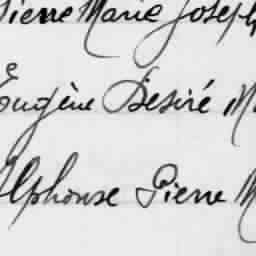 Pierre Marie Joseph
Eugène Desiré
Alphonse Pierre